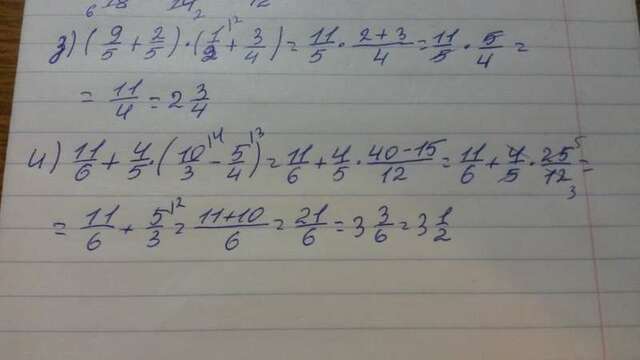 6 28 24 2 12
з) (9/5 + 2/5) · (1/2 |2 + 3/4) = 11/5 · (2+3)/4 = 11/5 · 5/4 =
= 11/4 = 2 3/4
и) 11/6 + 4/5 · (10/3 |4 - 5/4 |3) = 11/6 + 4/5 · (40-15)/12 = 11/6 + 4/5 · 25 5/12 3 =
= 11/6 + 5/3 |2 = (11+10)/6 = 21/6 = 3 3/6 = 3 1/2